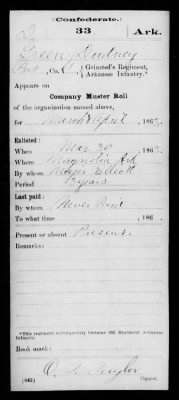 (Confederate.)
G 33 Ark.
Green Dudney
Pvt, Co. C, Grinsted's Regiment, Arkansas Infantry.*
Appears on
Company Muster Roll
of the organization named above,
for March & April, 1863.
Enlisted:
When Mar 30, 186
Where Magnolia Ark
By whom Major Elliott
Period 3 years
Last paid:
By whom Never Paid
To what time , 186 .
Present or absent Present
Remarks:
*This regiment subsequently became 33d Regiment Arkansas Infantry.
Book mark:
(642) Copyist.